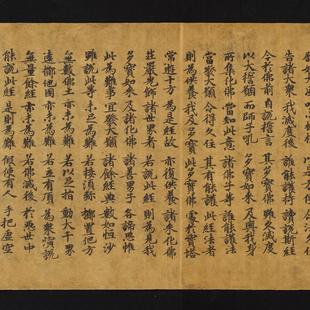 告諸大衆 我滅度後 誰能護持 讀說斯經
今於佛前 自說誓言 其多寶佛 雖久滅度
以大誓願 而師子吼 多寶如來 及與我身
所集化佛 當知此意 諸佛子等 誰能護法
當發大願 令得久住 其有能護 此經法者
則為供養 我及多寶 此多寶佛 處於寶塔
常遊十方 為是經故 亦復供養 諸來化佛
莊嚴光飾 諸世界者 若說此經 則為見我
多寶如來 及諸化佛 諸善男子 各諦思惟
此為難事 宜發大願 諸餘經典 數如恒沙
雖說此等 未足為難 若接須弥 擲置他方
無數佛土 亦未為難 若以足指 動大千界
遠擲他國 亦未為難 若立有頂 為衆演說
無量餘經 亦未為難 若佛滅後 於惡世中
能說此經 是則為難 假使有人 手把虛空